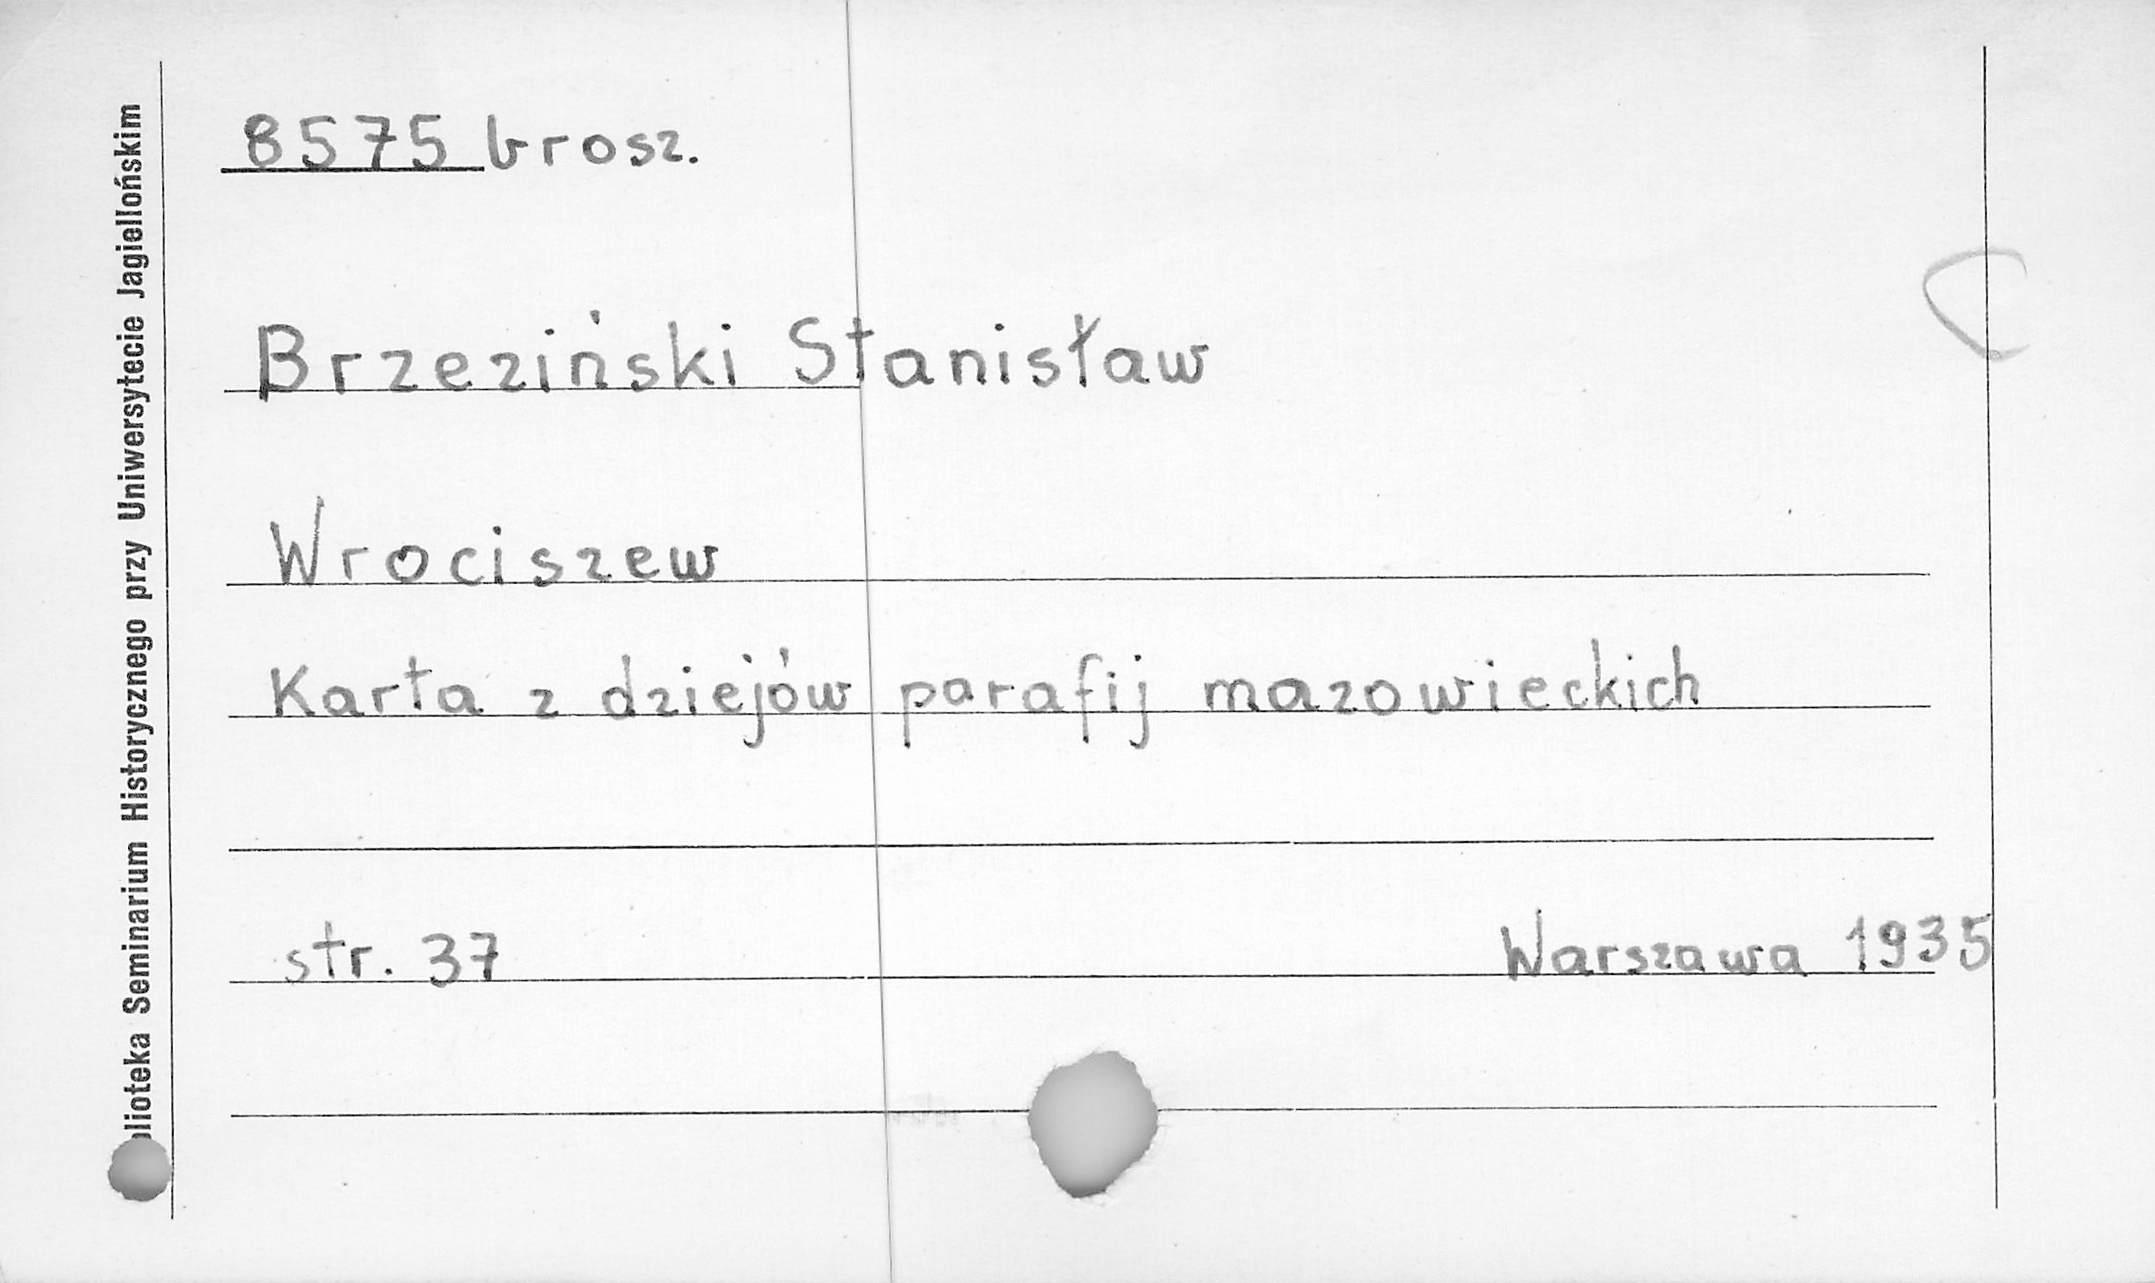 8575 brosz.
Brzeziński Stanisław
Wrociszew
Karta z dziejów parafij mazowieckich
str. 37
Warszawa 1935
blioteka Seminarium Historycznego przy Uniwersytecie Jagiellońskim